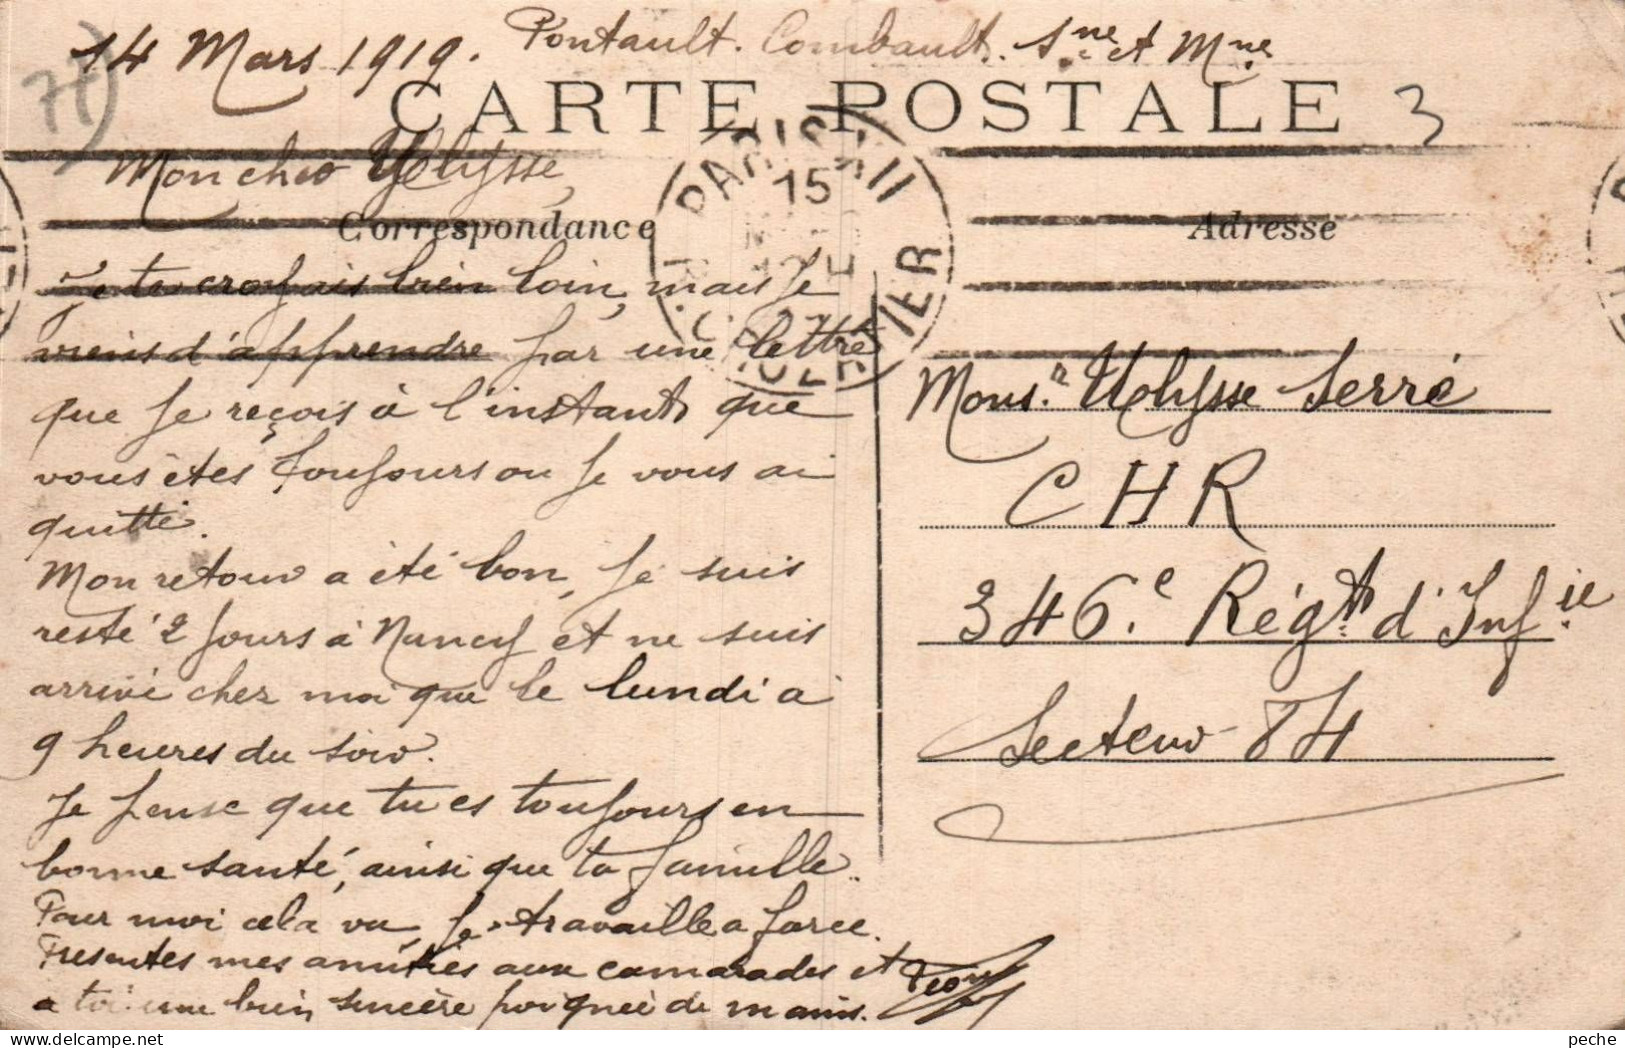 14 Mars 1919. Pontault. Combault. Sne et Mne
77)
CARTE POSTALE
3
Mon cher Uelysse,
PARIS XII
15
Correspondance
Adresse
Je te croyais bien loin, mais je
viens d'apprendre par une lettre
que je reçois à l'instant que
vous êtes toujours ou je vous ai
quitté.
Mon retour a été bon, je suis
resté 2 jours à Nancy et ne suis
arrivé chez moi que le lundi a
9 heures du soir.
Je pense que tu es toujours en
bonne santé, ainsi que ta famille.
Pour moi cela va, je travaille a force.
Presentes mes amitiés aux camarades et
a toi une bien sincère poignée de mains.
Monsr. Uelysse Serré
CHR
346e Régt d'Infie
Secteur 84
peche